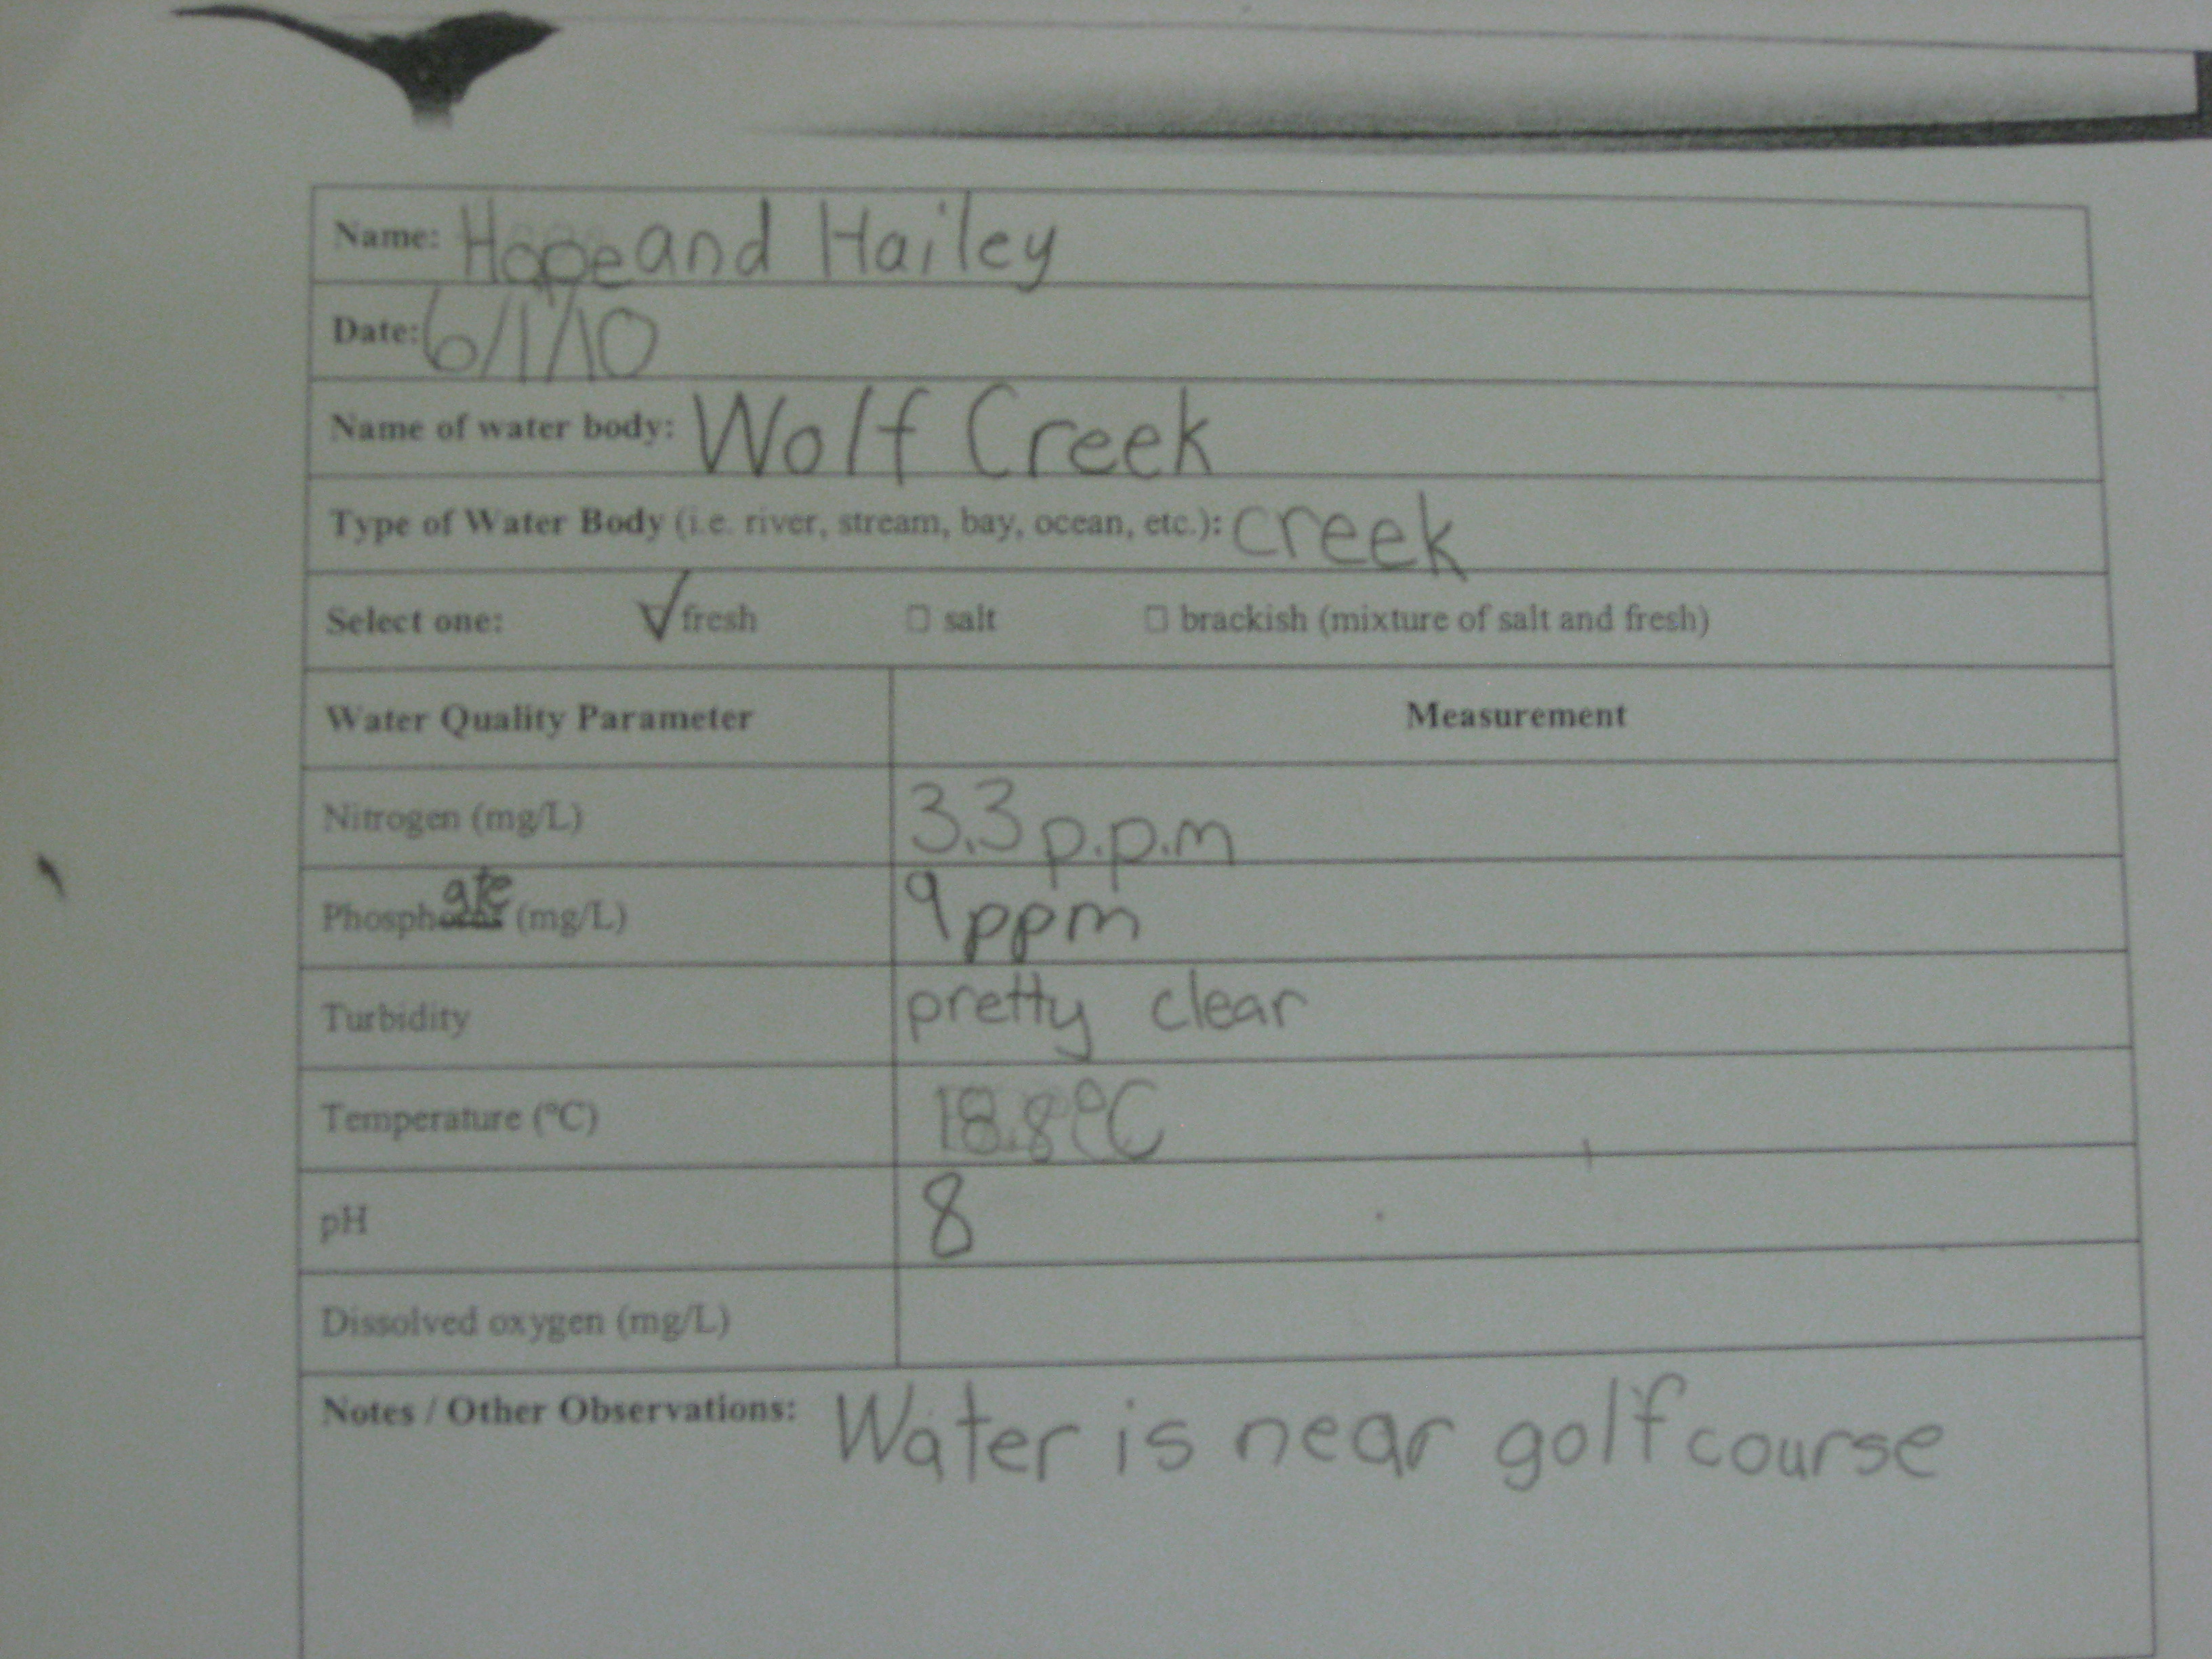 Name: Hope and Hailey
Date: 6/1/10
Name of water body: Wolf Creek
Type of Water Body (i.e. river, stream, bay, ocean, etc.): creek
Select one: ✓ fresh □ salt □ brackish (mixture of salt and fresh)
Water Quality Parameter Measurement
Nitrogen (mg/L) 3.3 p.p.m
Phosphate (mg/L) 9 ppm
Turbidity pretty clear
Temperature (°C) 18.8°C
pH 8
Dissolved oxygen (mg/L)
Notes / Other Observations: Water is near golf course